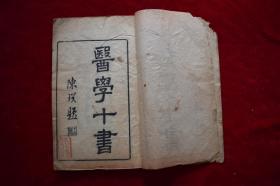 醫學十書
陳璞題